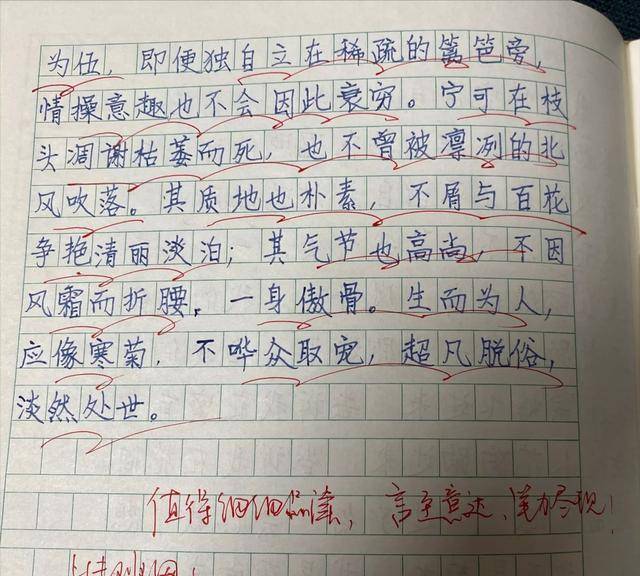 为伍，即便独自立在稀疏的篱笆旁，
情操意趣也不会因此衰穷。宁可在枝
头凋谢枯萎而死，也不曾被凛冽的北
风吹落。其质地也朴素，不屑与百花
争艳清丽淡泊；其气节也高尚，不因
风霜而折腰，一身傲骨。生而为人，
应像寒菊，不哗众取宠，超凡脱俗，
淡然处世。
值得细细品鉴，言至意达、笔力尽现！